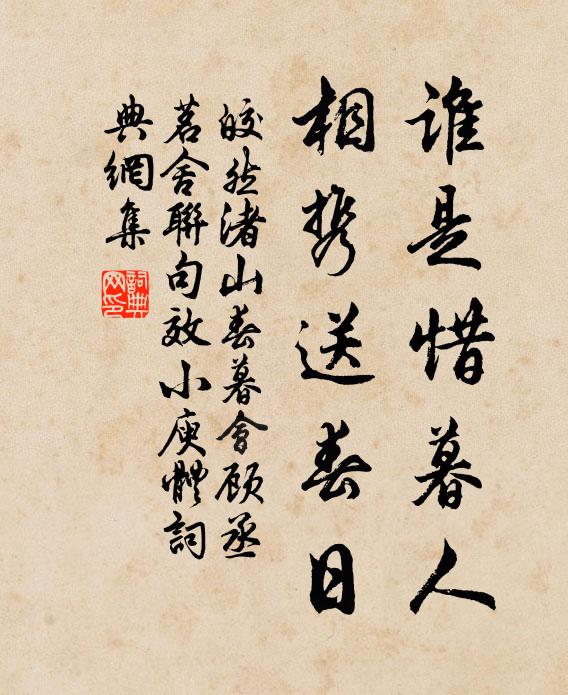 誰是惜暮人
相攜送春日
皎然渚山春暮會顧丞
茗舍聯句效小庾體詞
典網集
詞典
网印